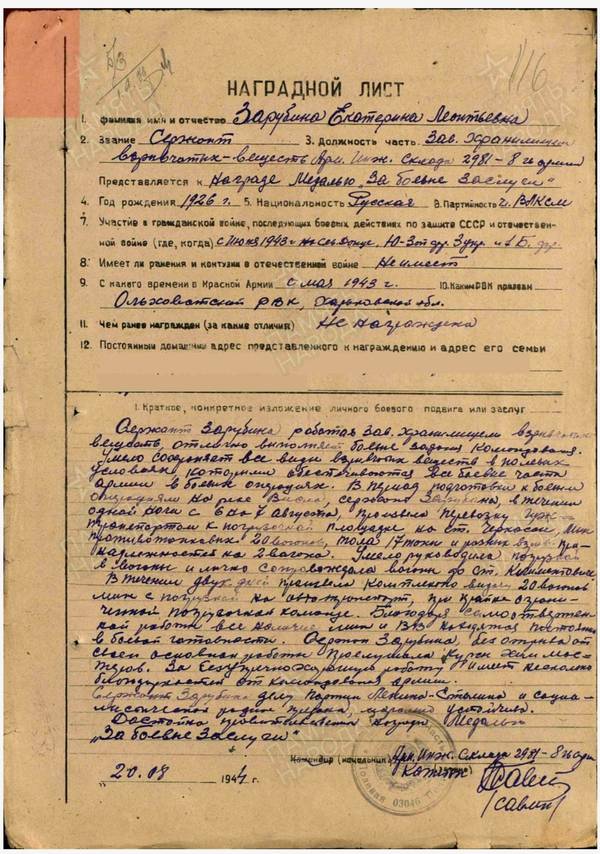 116
НАГРАДНОЙ ЛИСТ
1. фамилия имя и отчество Зарубина Екатерина Леонтьевна
2. Звание Сержант 3. Должность часть Зав. Хранилищем
взрывчатых-веществ Арм. Инж. Склада 2981 - 8 гв армии
Представляется к Награде Медалью „За боевые Заслуги"
4. Год рождения 1926 г. 5. Национальность Русская 6. Партийность чл. ВЛКСМ
7. Участие в гражданской войне, последующих боевых действиях по защите СССР и отечествен-
ной войне (где, когда) с Июня 1943 г. Ю-Зап. фр. 3 укр. и 1 Б. фр.
8. Имеет ли ранения и контузии в отечественной войне Не имеет
9. С какого времени в Красной Армии с мая 1943 г. 10. Каким РВК призван
Ольховатский РВК, Харьковской обл.
11. Чем ранее награжден (за какие отличия) Не Награждена
12. Постоянный домашний адрес представленного к награждению и адрес его семьи
1. Краткое, конкретное изложение личного боевого подвига или заслуг
Сержант Зарубина работая Зав. Хранилищем взрывчатых
веществ, отлично выполняет боевые задания Командования.
Умело сохраняет все виды взрывчатых веществ в полевых
условиях которыми обеспечиваются все боевые части
армии в боевых операциях. В период подготовки к боевым
операциям на реке Висла, сержант Зарубина, в течении
одной ночи с 6 на 7 августа, произвела перевозку
транспортом к погрузочной площадке на ст. Черкасы, Мин
противотанковых 20 вагонов, тола 17 тонн и разных взрыв. при-
надлежностей на 2 вагона. Умело руководила погрузкой
в вагоны и лично сопровождала вагоны до ст.
В течении двух дней произвела 20 вагонов
мин с погрузкой на автотранспорт, при крайне ограни-
ченной погрузочной команде. Благодаря самоотвержен-
ной работы все наличие мин и ВВ находятся постоянно
в боевой готовности. Сержант Зарубина, без отрыва от
своей основной работы прослушала Курсы хим мас-
теров. За безупречную работу имеет несколько
благодарностей от командования армии.
Сержант Зарубина делу партии Ленина-Сталина и социа-
листической родине предана, морально устойчива.
Достойна правительственной награды Медалью
„За боевые Заслуги"
Командир (начальник) Арм. Инж. Склада 2981 - 8 гв арм
20.08 1944 г. Капитан
03046